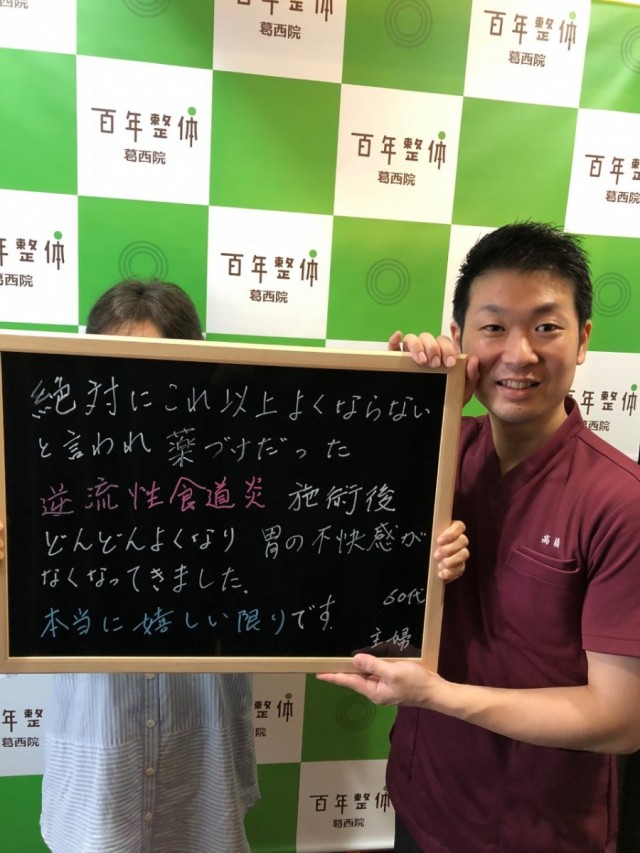 百年整体
葛西院
百年整体
葛西院
百年整体
葛西院
百年整体
葛西院
百年整体
葛西院
年整体
葛西院
百年整体
葛西院
絶対にこれ以上よくならない
と言われ薬づけだった
逆流性食道炎 施術後
どんどんよくなり 胃の不快感が
なくなってきました.
本当に嬉しい限りです.
60代
主婦
年整
葛西院
整体
院
百年整体
葛西院